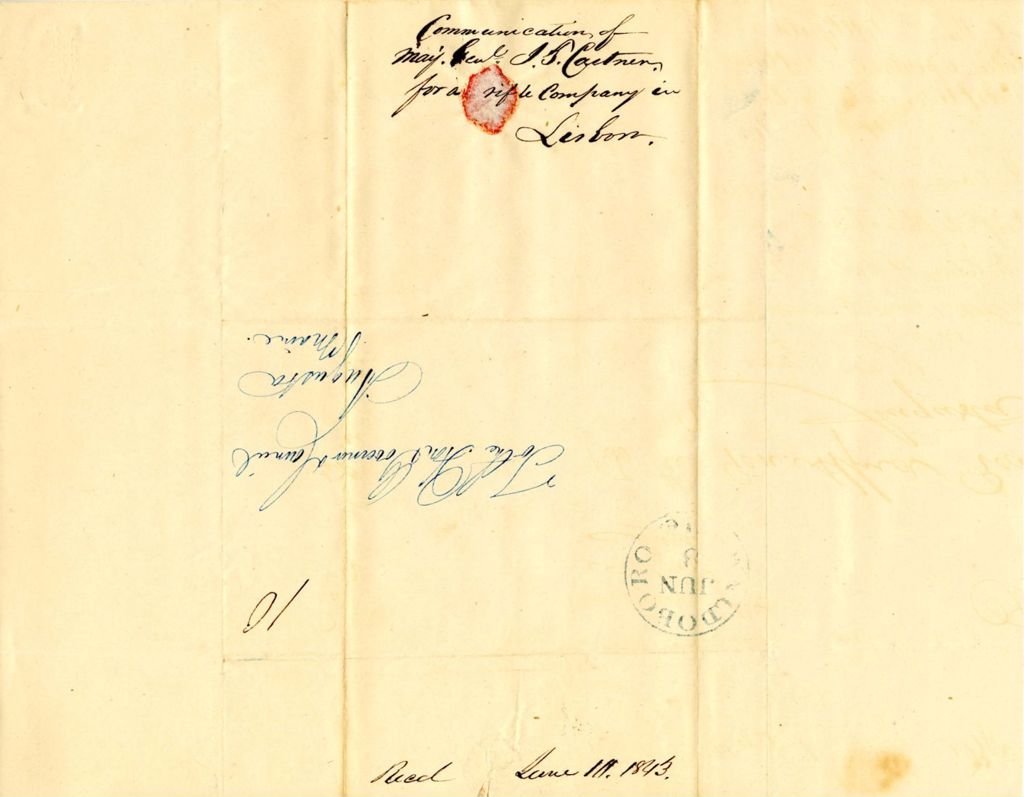 Communication of
Maj. Genl. J. S. Castner,
for a rifle Company in
Lisbon.
To the Hon.
Augusta
Maine.
10
JUN
8
Recd June 10. 1843.